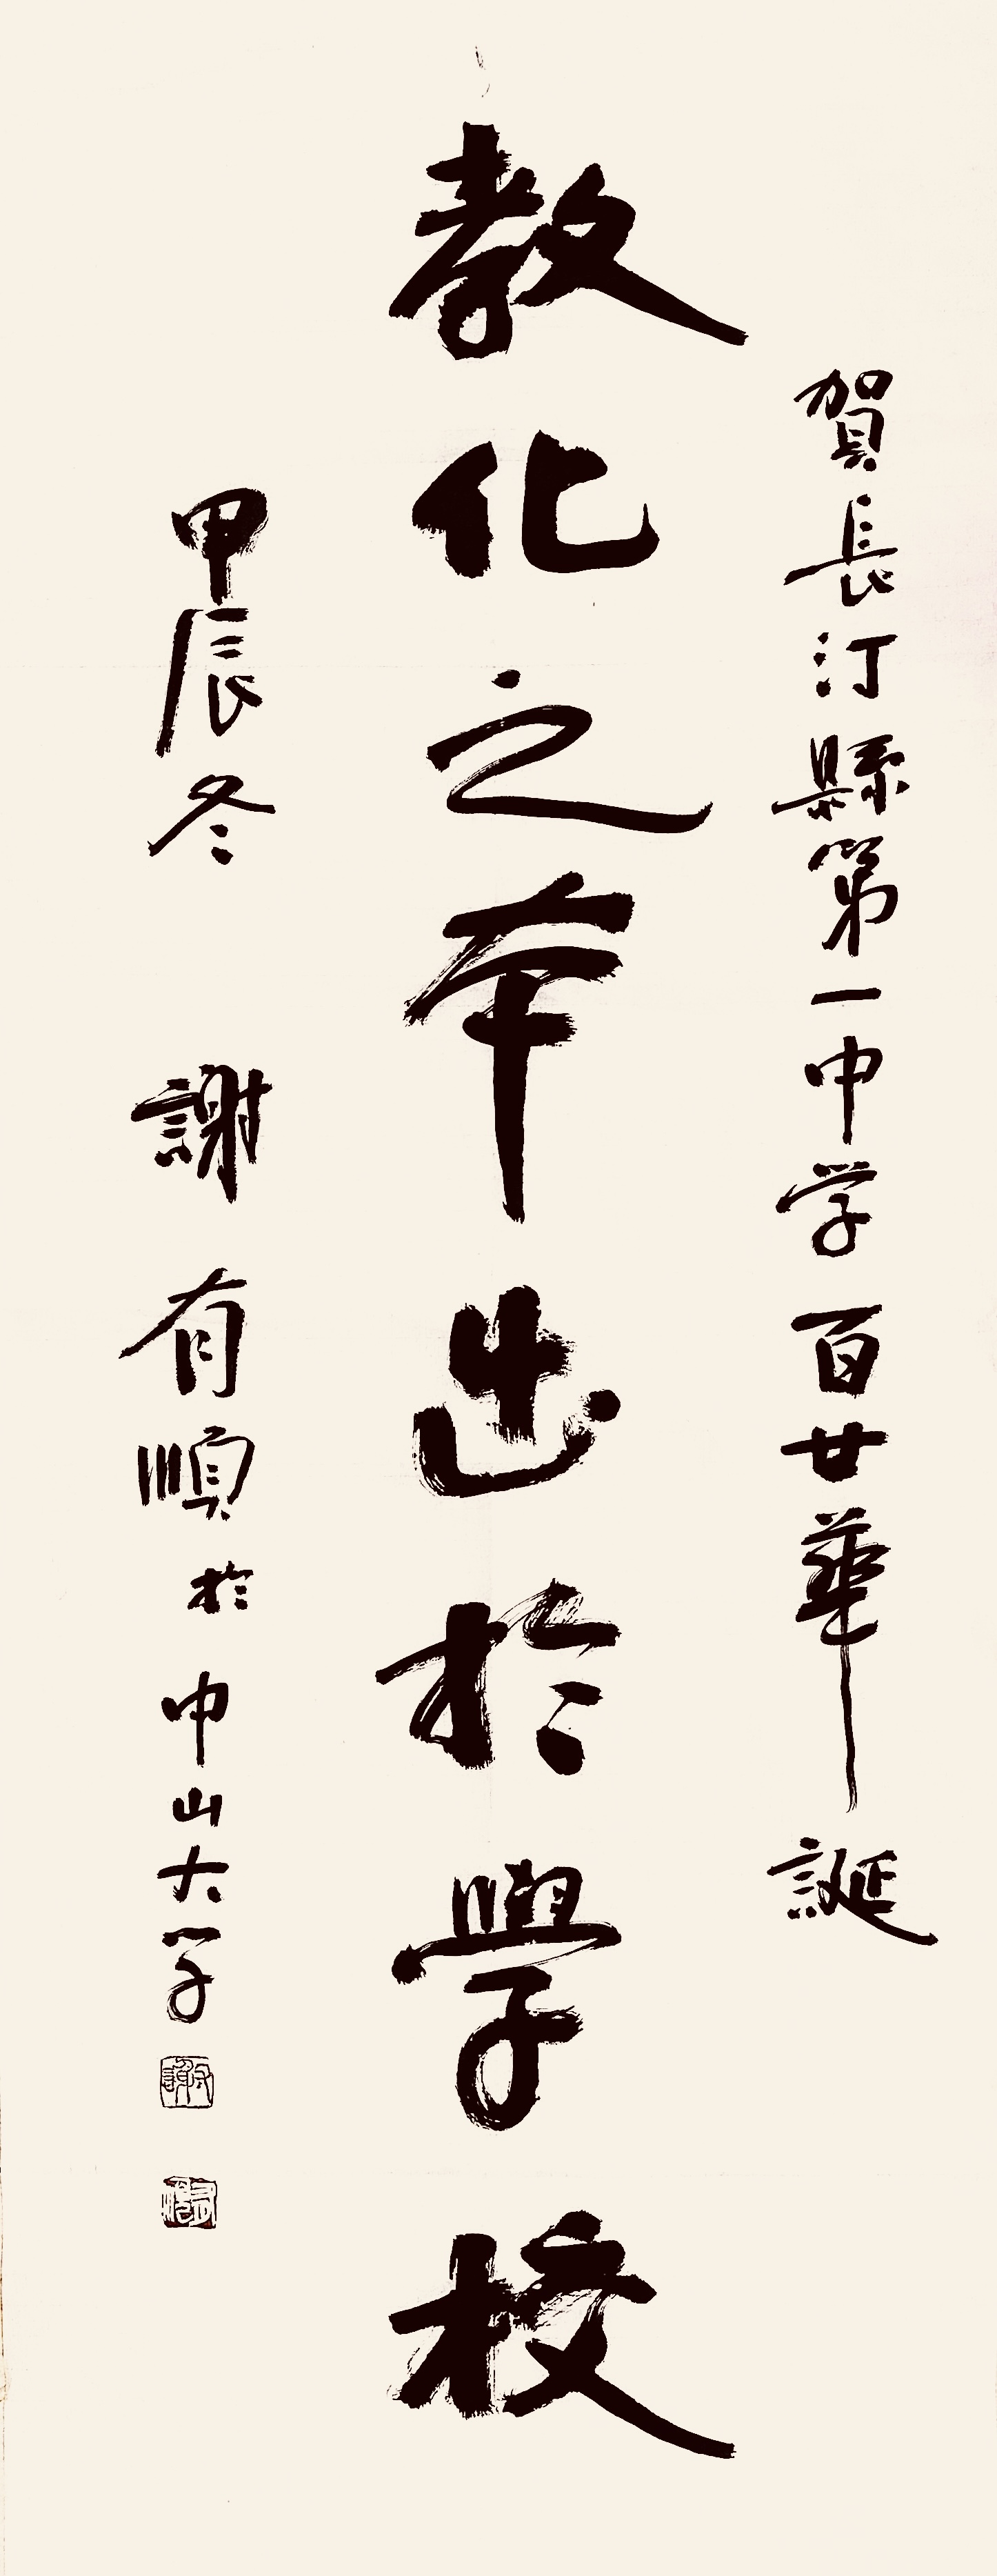 賀長汀縣第一中学百廿華誕
教化之本出於學校
甲辰冬 謝有順於中山大学